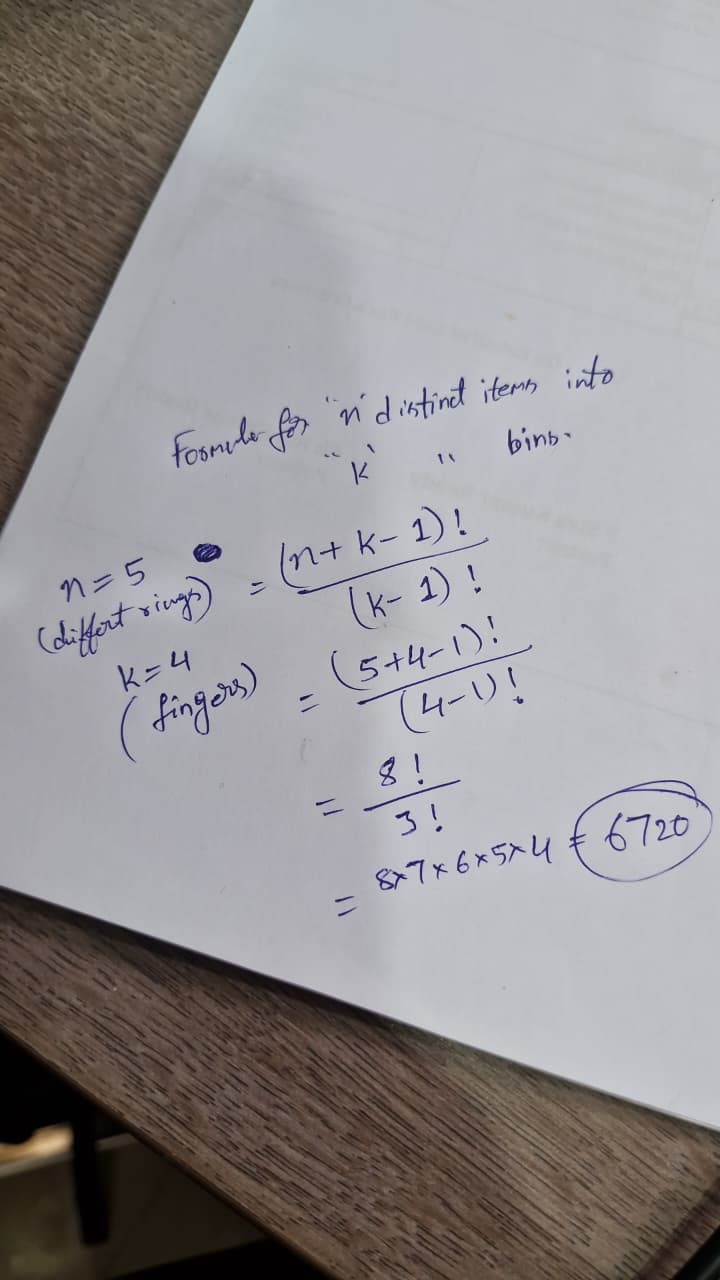 Formula for "n" distinct items into
"k" " bins.
n = 5
(differt rings)
= (n+k-1)! / (k-1)!
k = 4
(fingers)
= (5+4-1)! / (4-1)!
= 8! / 3!
= 8×7×6×5×4 = 6720